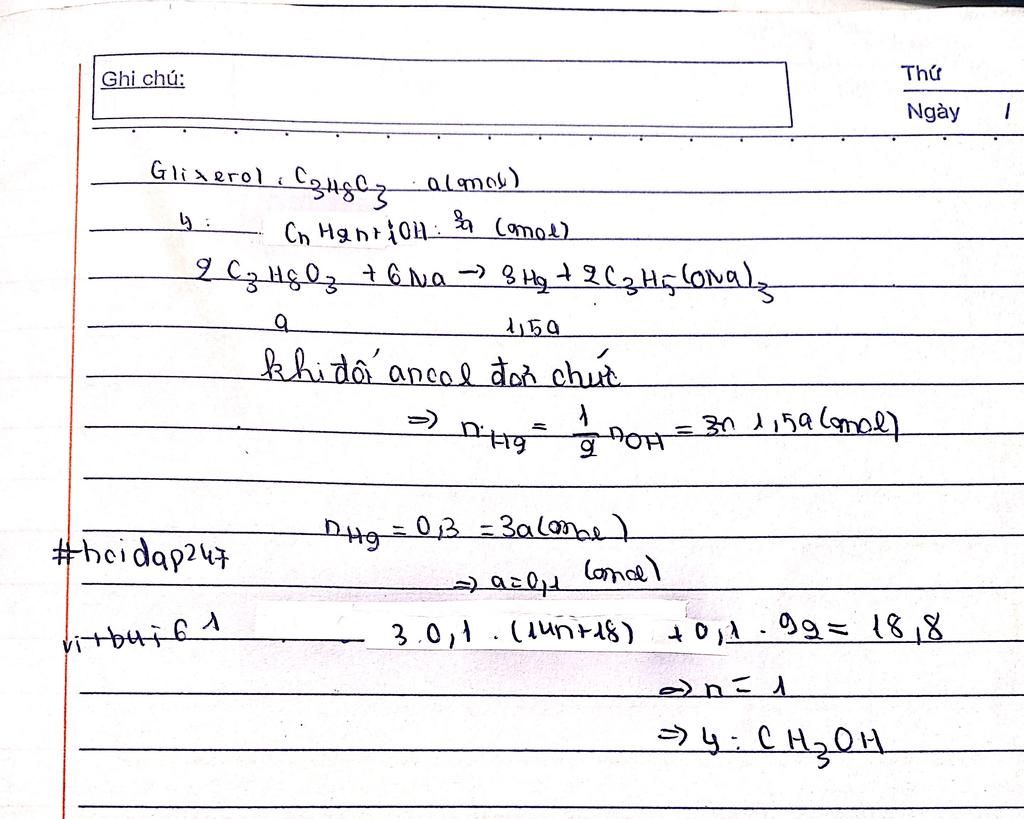 Ghi chú:
Thứ
Ngày /
Glixerol: C3H8C3 a(mol)
y: CnH2n+1OH: (mol)
2 C3H8O3 + 6Na → 3H2 + 2C3H5(ONa)3
a 1,5a
khi đối ancol đơn chức
=> nH2 = 1/2 nOH = 1,5a (mol)
nH2 = 0,3 = 3a(mol)
#hoidap247
=> a=0,1 (mol)
3.0,1.(14n+18) + 0,1.92 = 18,8
=> n = 1
=> y: CH3OH